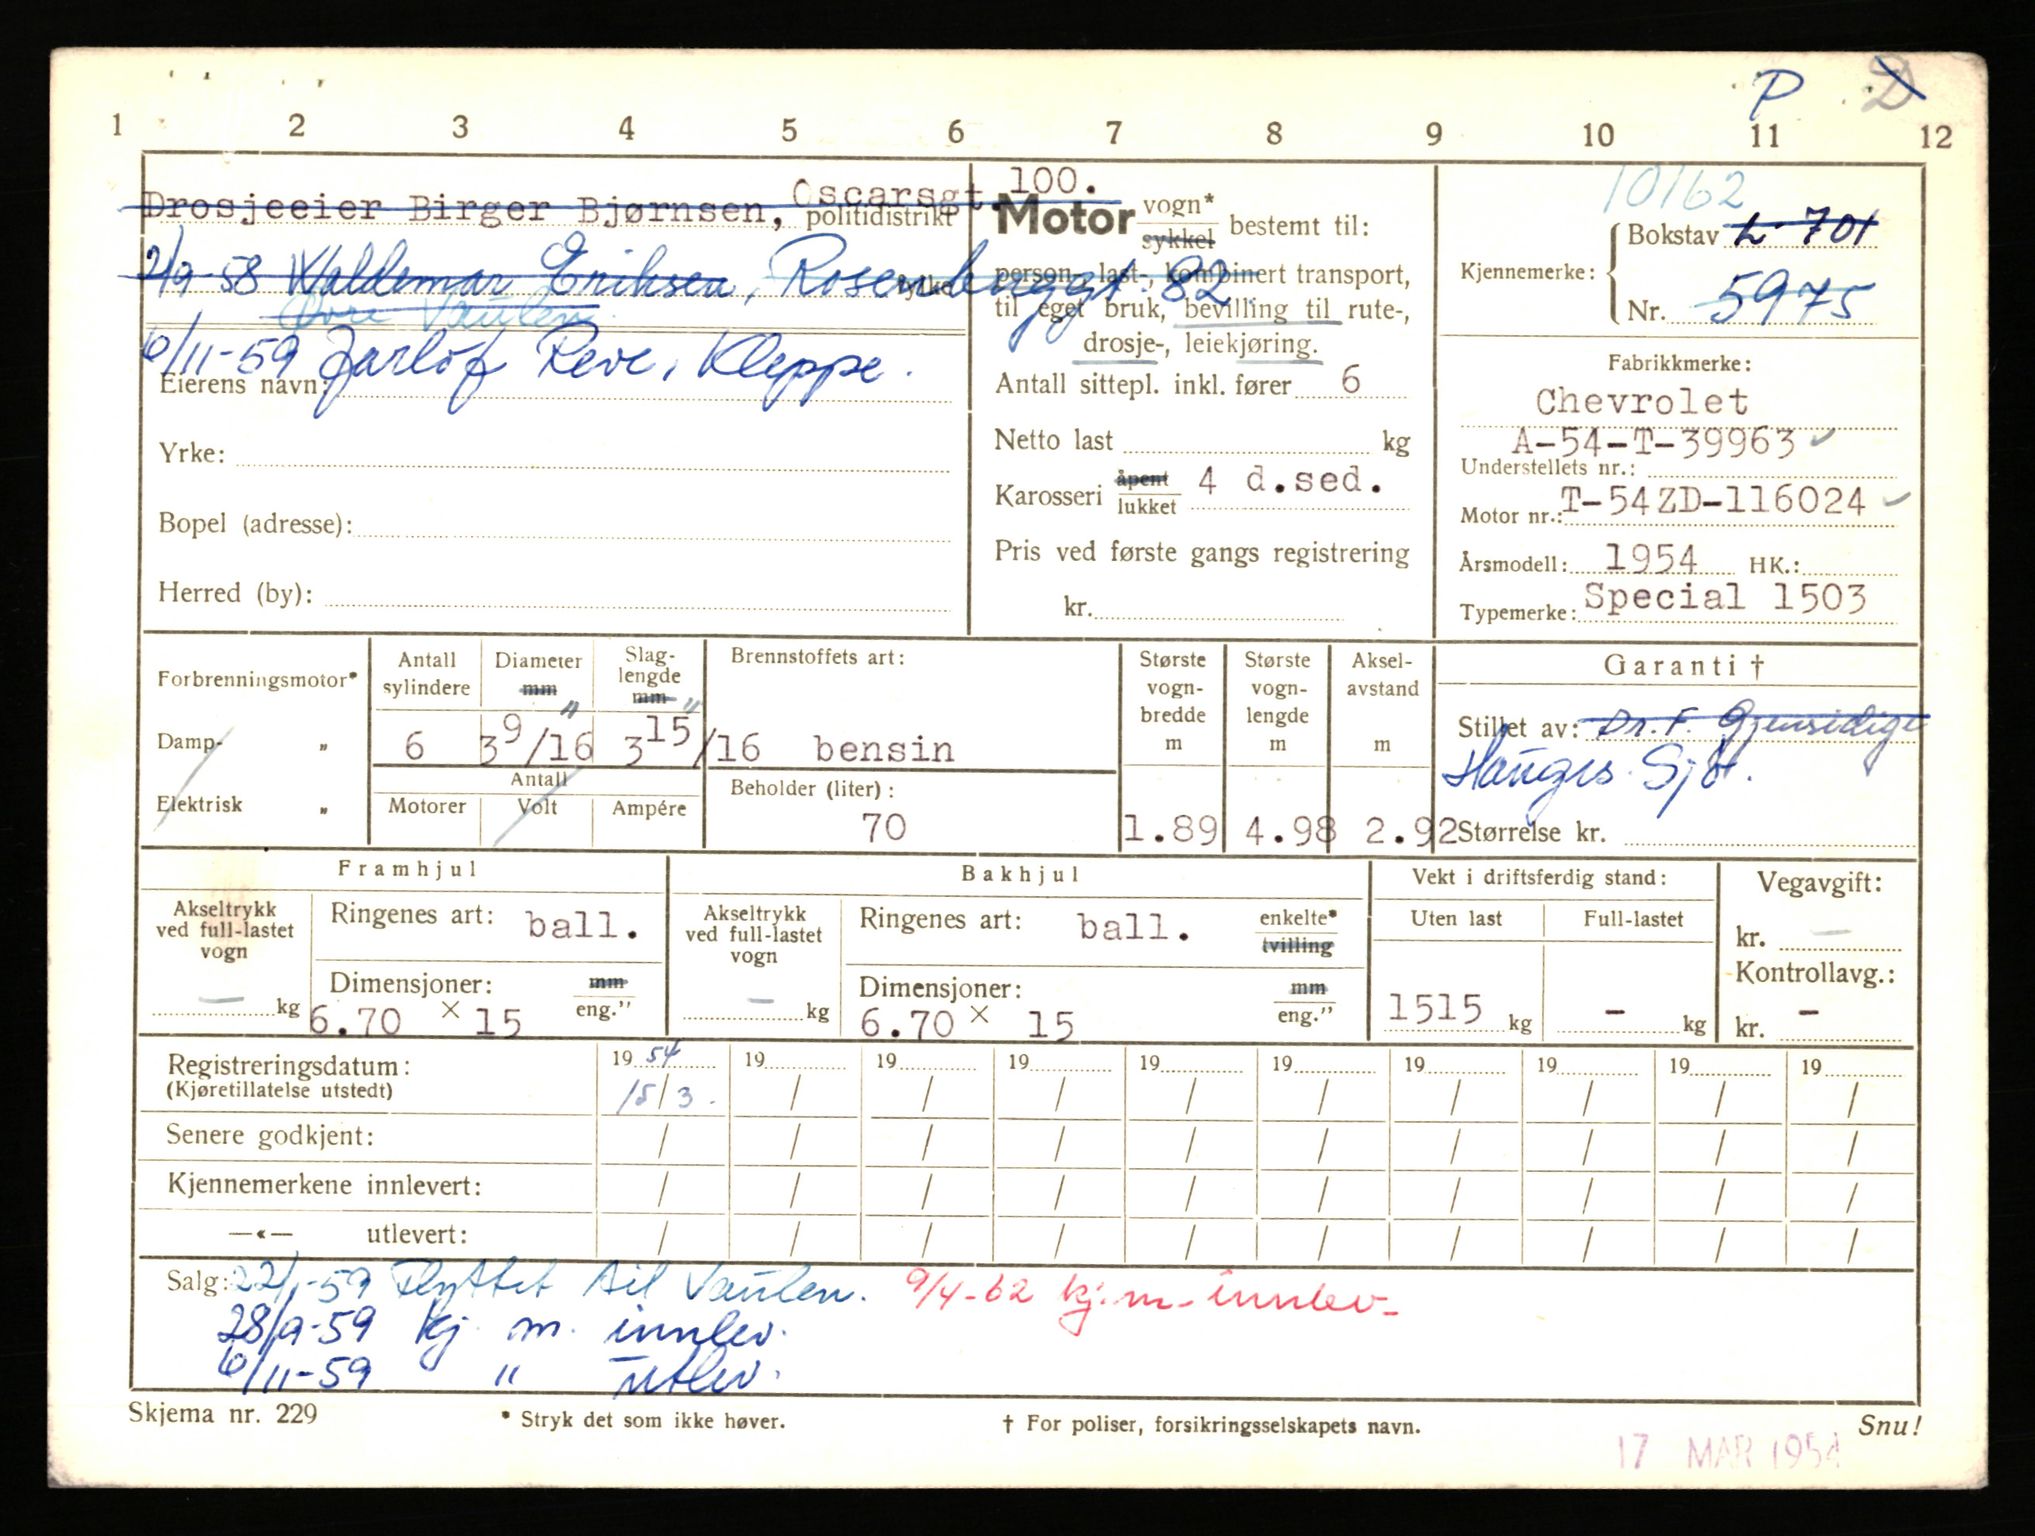 P D
1 2 3 4 5 6 7 8 9 10 11 12
Drosjeeier Birger Bjørnsen, Oscarsgt. 100.
politidistrikt
2/9-58 Waldemar Eriksen, Rosenberggt. 82
fylke
Øvre Vaulen
6/11-59 Jarlof Reve, Kleppe.
Eierens navn:
Yrke:
Bopel (adresse):
Herred (by):
Motor vogn* sykkel bestemt til:
person-, last-, kombinert transport,
til eget bruk, bevilling til rute-,
drosje-, leiekjøring.
Antall sittepl. inkl. fører 6
Netto last kg
Karosseri åpent lukket 4 d.sed.
Pris ved første gangs registrering
kr.
10162
Kjennemerke: Bokstav L 701
Nr. 5975
Fabrikkmerke:
Chevrolet
A-54-T-39963
Understellets nr.:
Motor nr.: T-54ZD-116024
Årsmodell: 1954 HK.:
Typemerke: Special 1503
Forbrenningsmotor*
Damp- "
Elektrisk "
Antall sylindere 6
Diameter mm " 3 9/16
Slaglengde mm " 3 15/16
Antall
Motorer Volt Ampére
Brennstoffets art:
bensin
Beholder (liter):
70
Største vogn-bredde m 1.89
Største vogn-lengde m 4.98
Aksel-avstand m 2.92
Garanti †
Stillet av: Dr.F. Gjensidige
Haugrs. Sjø.
Størrelse kr.
Framhjul
Akseltrykk ved full-lastet vogn
— kg
Ringenes art: ball.
Dimensjoner: mm eng."
6.70 × 15
Bakhjul
Akseltrykk ved full-lastet vogn
— kg
Ringenes art: ball. enkelte* tvilling
Dimensjoner: mm eng."
6.70 × 15
Vekt i driftsferdig stand:
Uten last Full-lastet
1515 kg - kg
Vegavgift:
kr. —
Kontrollavg.:
kr. -
Registreringsdatum: 19 54 19 19 19 19 19 19 19 19 19
(Kjøretillatelse utstedt) 15/3. / / / / / / / / /
Senere godkjent: / / / / / / / / / /
Kjennemerkene innlevert: / / / / / / / / / /
—«— utlevert: / / / / / / / / / /
Salg: 22/1-59 Flyttet til Vaulen. 9/4-62 kj.m-innlev-
28/9-59 kj. m. innlev.
6/11-59 " utlev.
Skjema nr. 229 * Stryk det som ikke høver. † For poliser, forsikringsselskapets navn. Snu!
17 MAR 1954